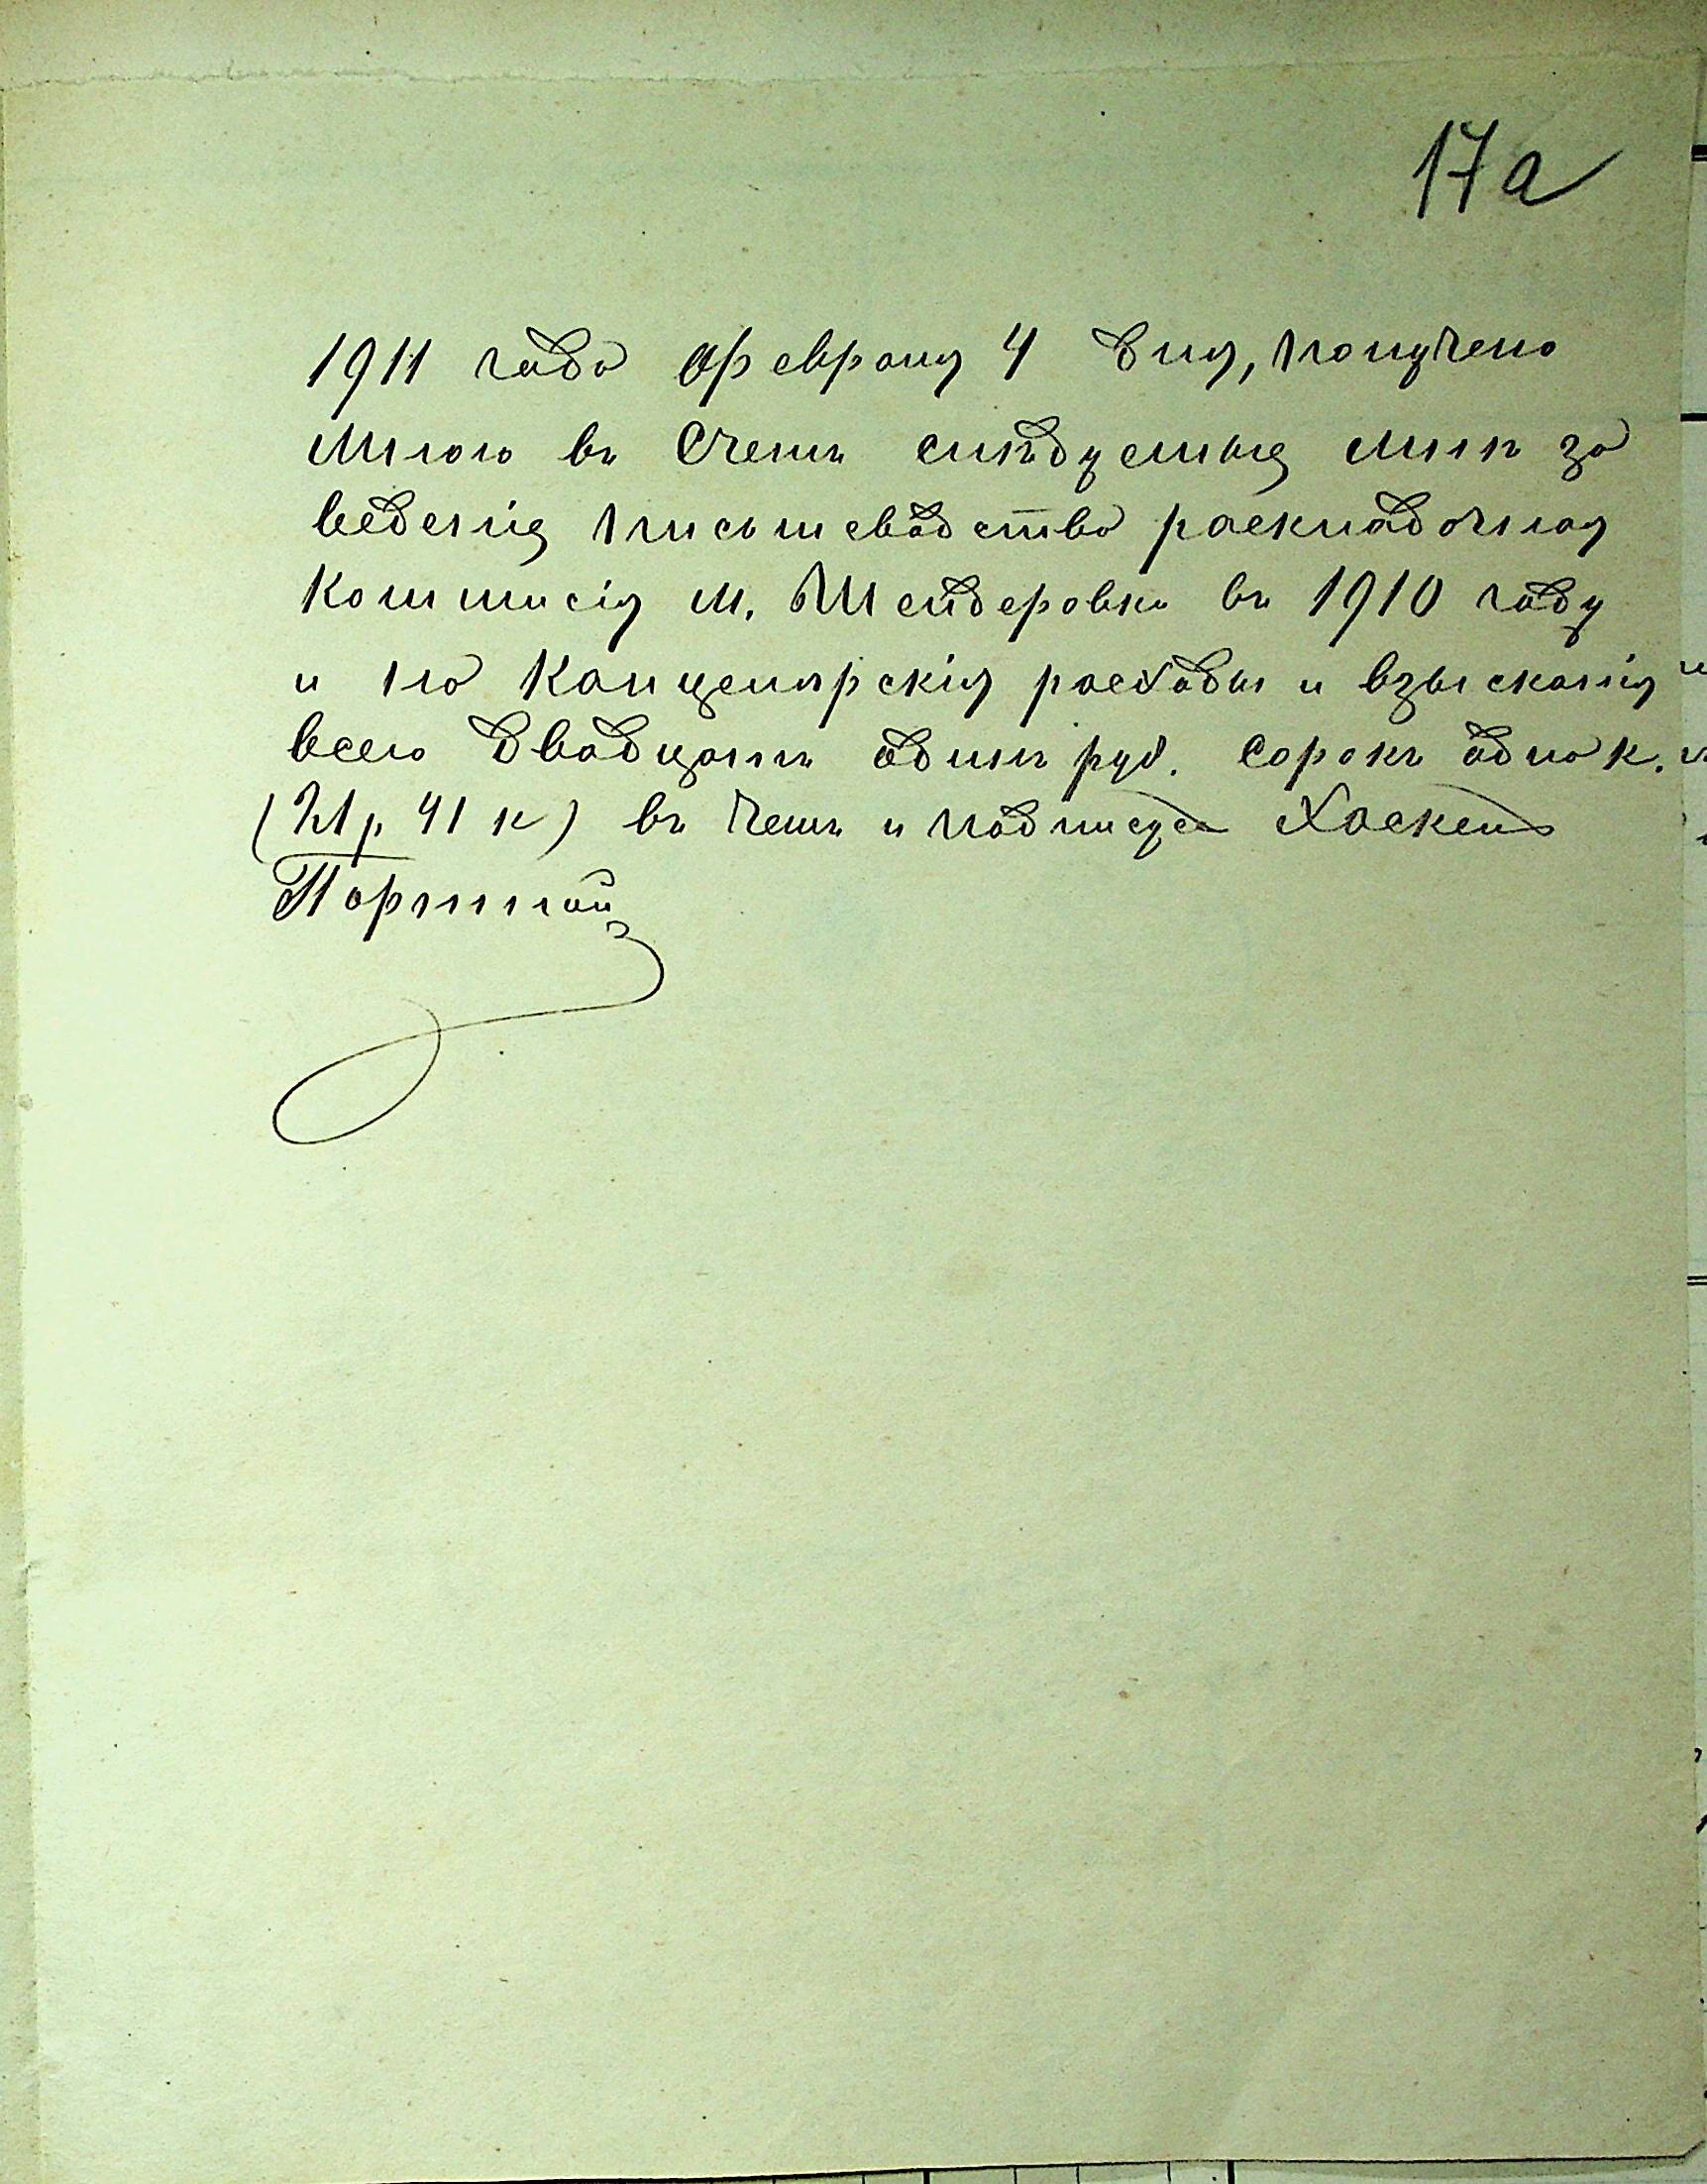 17а
1911 года Февраля 4 дня, получено
Мною въ Счетъ слѣдуемые мнѣ за
веденіе письмеводство раскладочная
Коммисія м. Шендеровки въ 1910 году
и на Канцелярскія расходы и взысканія
всего Двадцать один руб. Сорокъ одна к.
(21 р. 41 к) въ чемъ и подписуся Хаскель
Портной